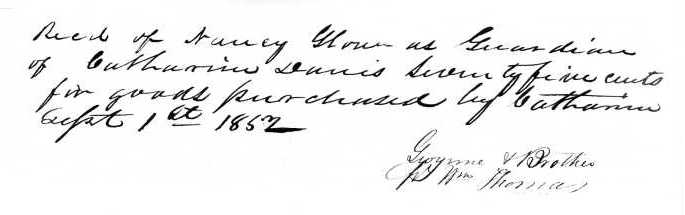 Recd of Nancy Glover as Guardian
of Catharine Davis Seventy five cents
for goods purchased by Catharine
Sept 1st 1852
Gwynne & Brother
pr Wm Thomas